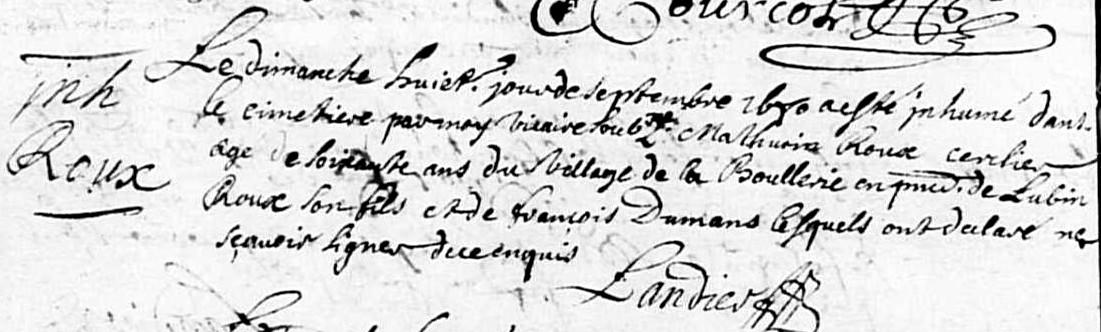 Le dimanche huict.e jour de septembre 1670 a esté jnhumé dans
jnh
le cimetiere par moy vicaire soub.né Mathurin Roux cerclier
Roux
age de soixante ans du village de la Boullerie en pnce. de Lubin
Roux son fils et de françois Dumans lesquels ont declaré ne
sçavoir signer de ce enquis
Landier